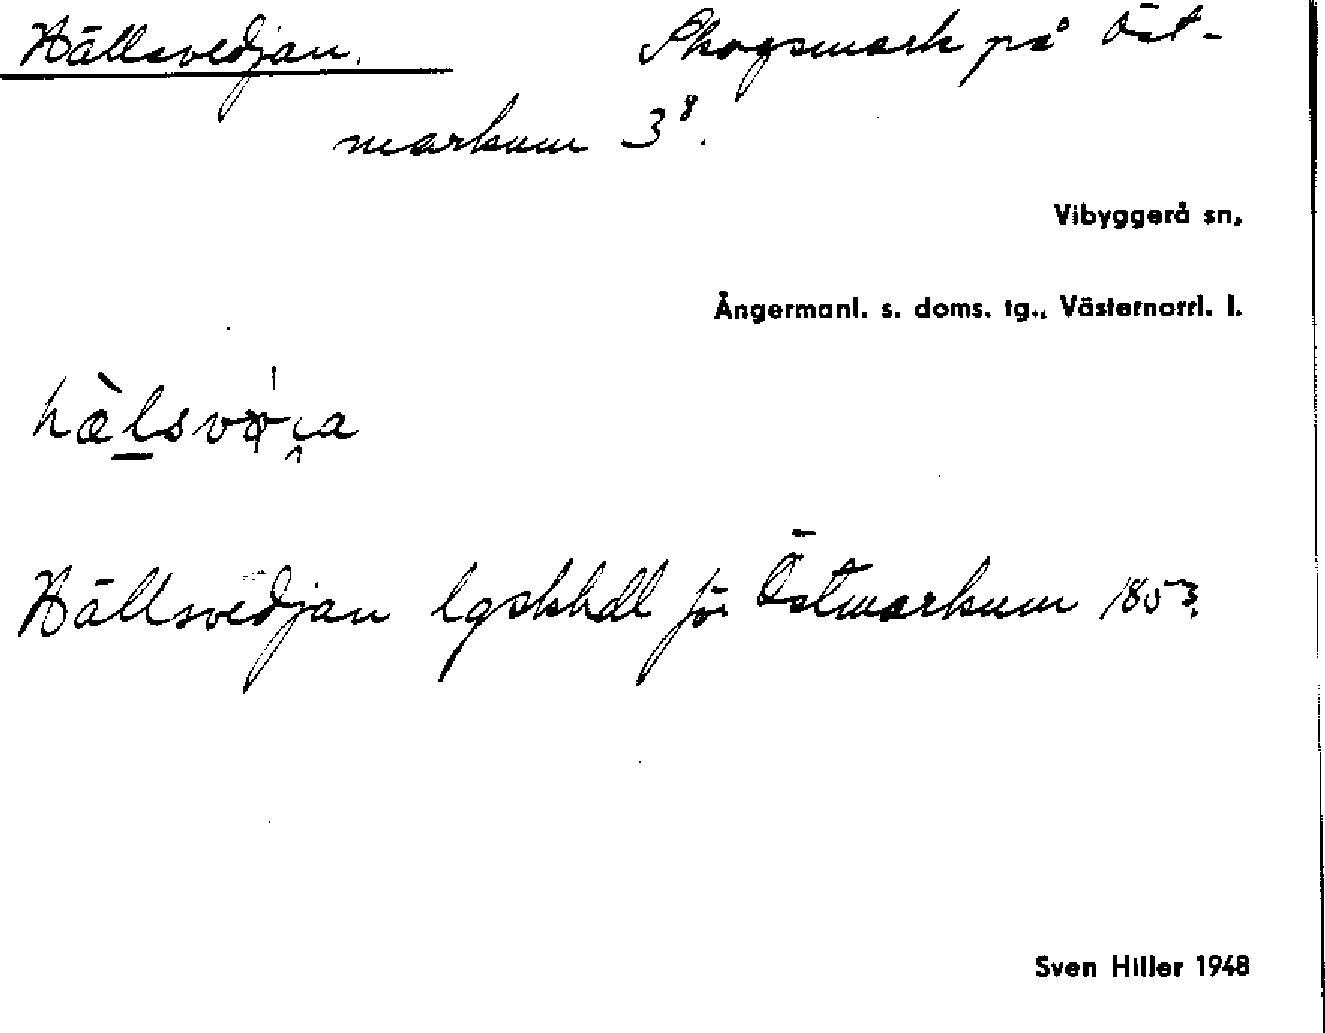 Hällsvedjan. Skogsmark på Öst-
markum 3⁸.
Vibyggerå sn,
Ångermanl. s. doms. tg., Västernorrl. l.
Hällsvedjan lgskhdl för Östmarkum 1853.
Sven Hiller 1948